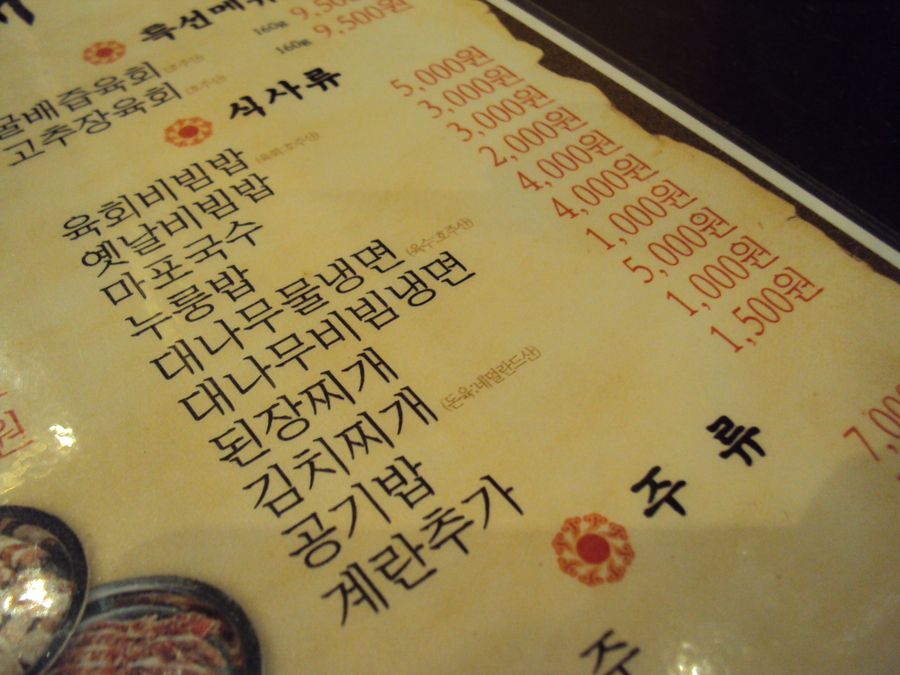 육회메뉴
160g 9,500
160g 9,500원
골배즙육회 (호주산)
고추장육회 (호주산)
식사류
육회비빔밥 (육회:호주산) 5,000원
옛날비빔밥 3,000원
마포국수 3,000원
누룽밥 2,000원
대나무물냉면 (육수:호주산) 4,000원
대나무비빔냉면 4,000원
된장찌개 1,000원
김치찌개 (돈육:네덜란드산) 5,000원
공기밥 1,000원
계란추가 1,500원
주류
7,00
원
주